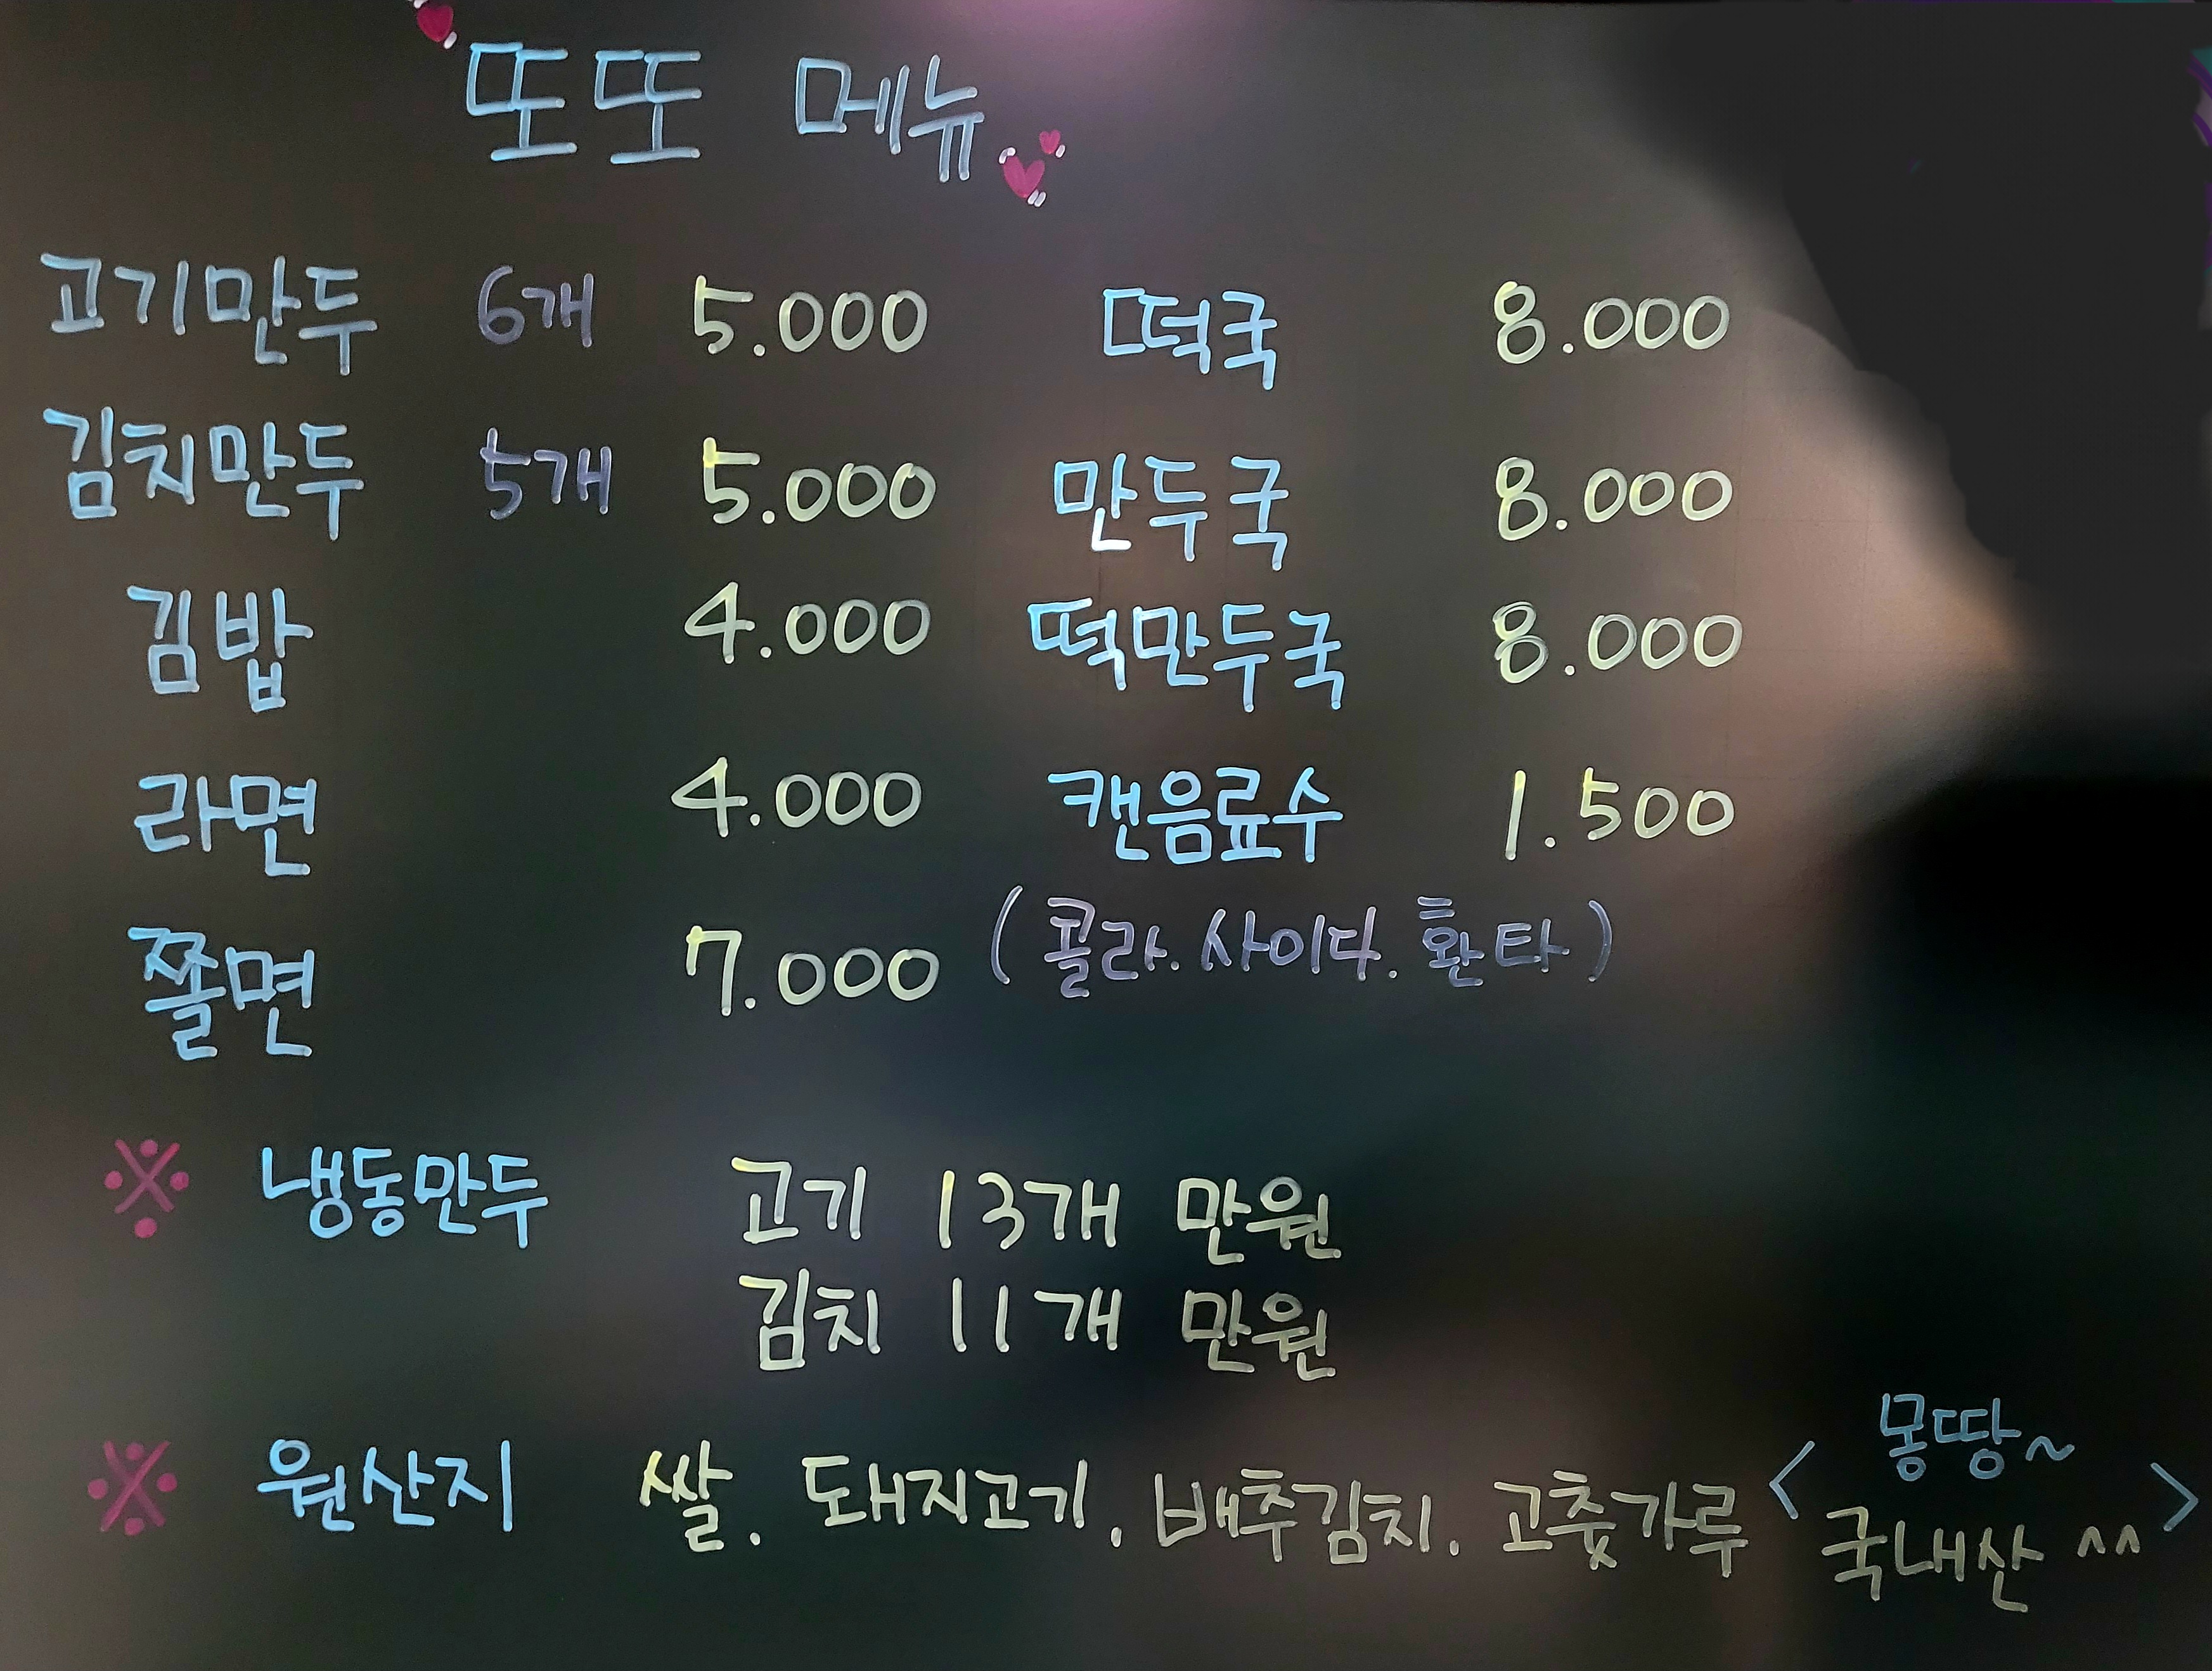 또또 메뉴
고기만두 6개 5.000 떡국 8.000
김치만두 5개 5.000 만두국 8.000
김밥 4.000 떡만두국 8.000
라면 4.000 캔음료수 1.500
쫄면 7.000 (콜라.사이다.환타)
※ 냉동만두 고기 13개 만원
김치 11개 만원
※ 원산지 쌀. 돼지고기. 배추김치. 고춧가루 < 몽땅~
국내산 ^^ >